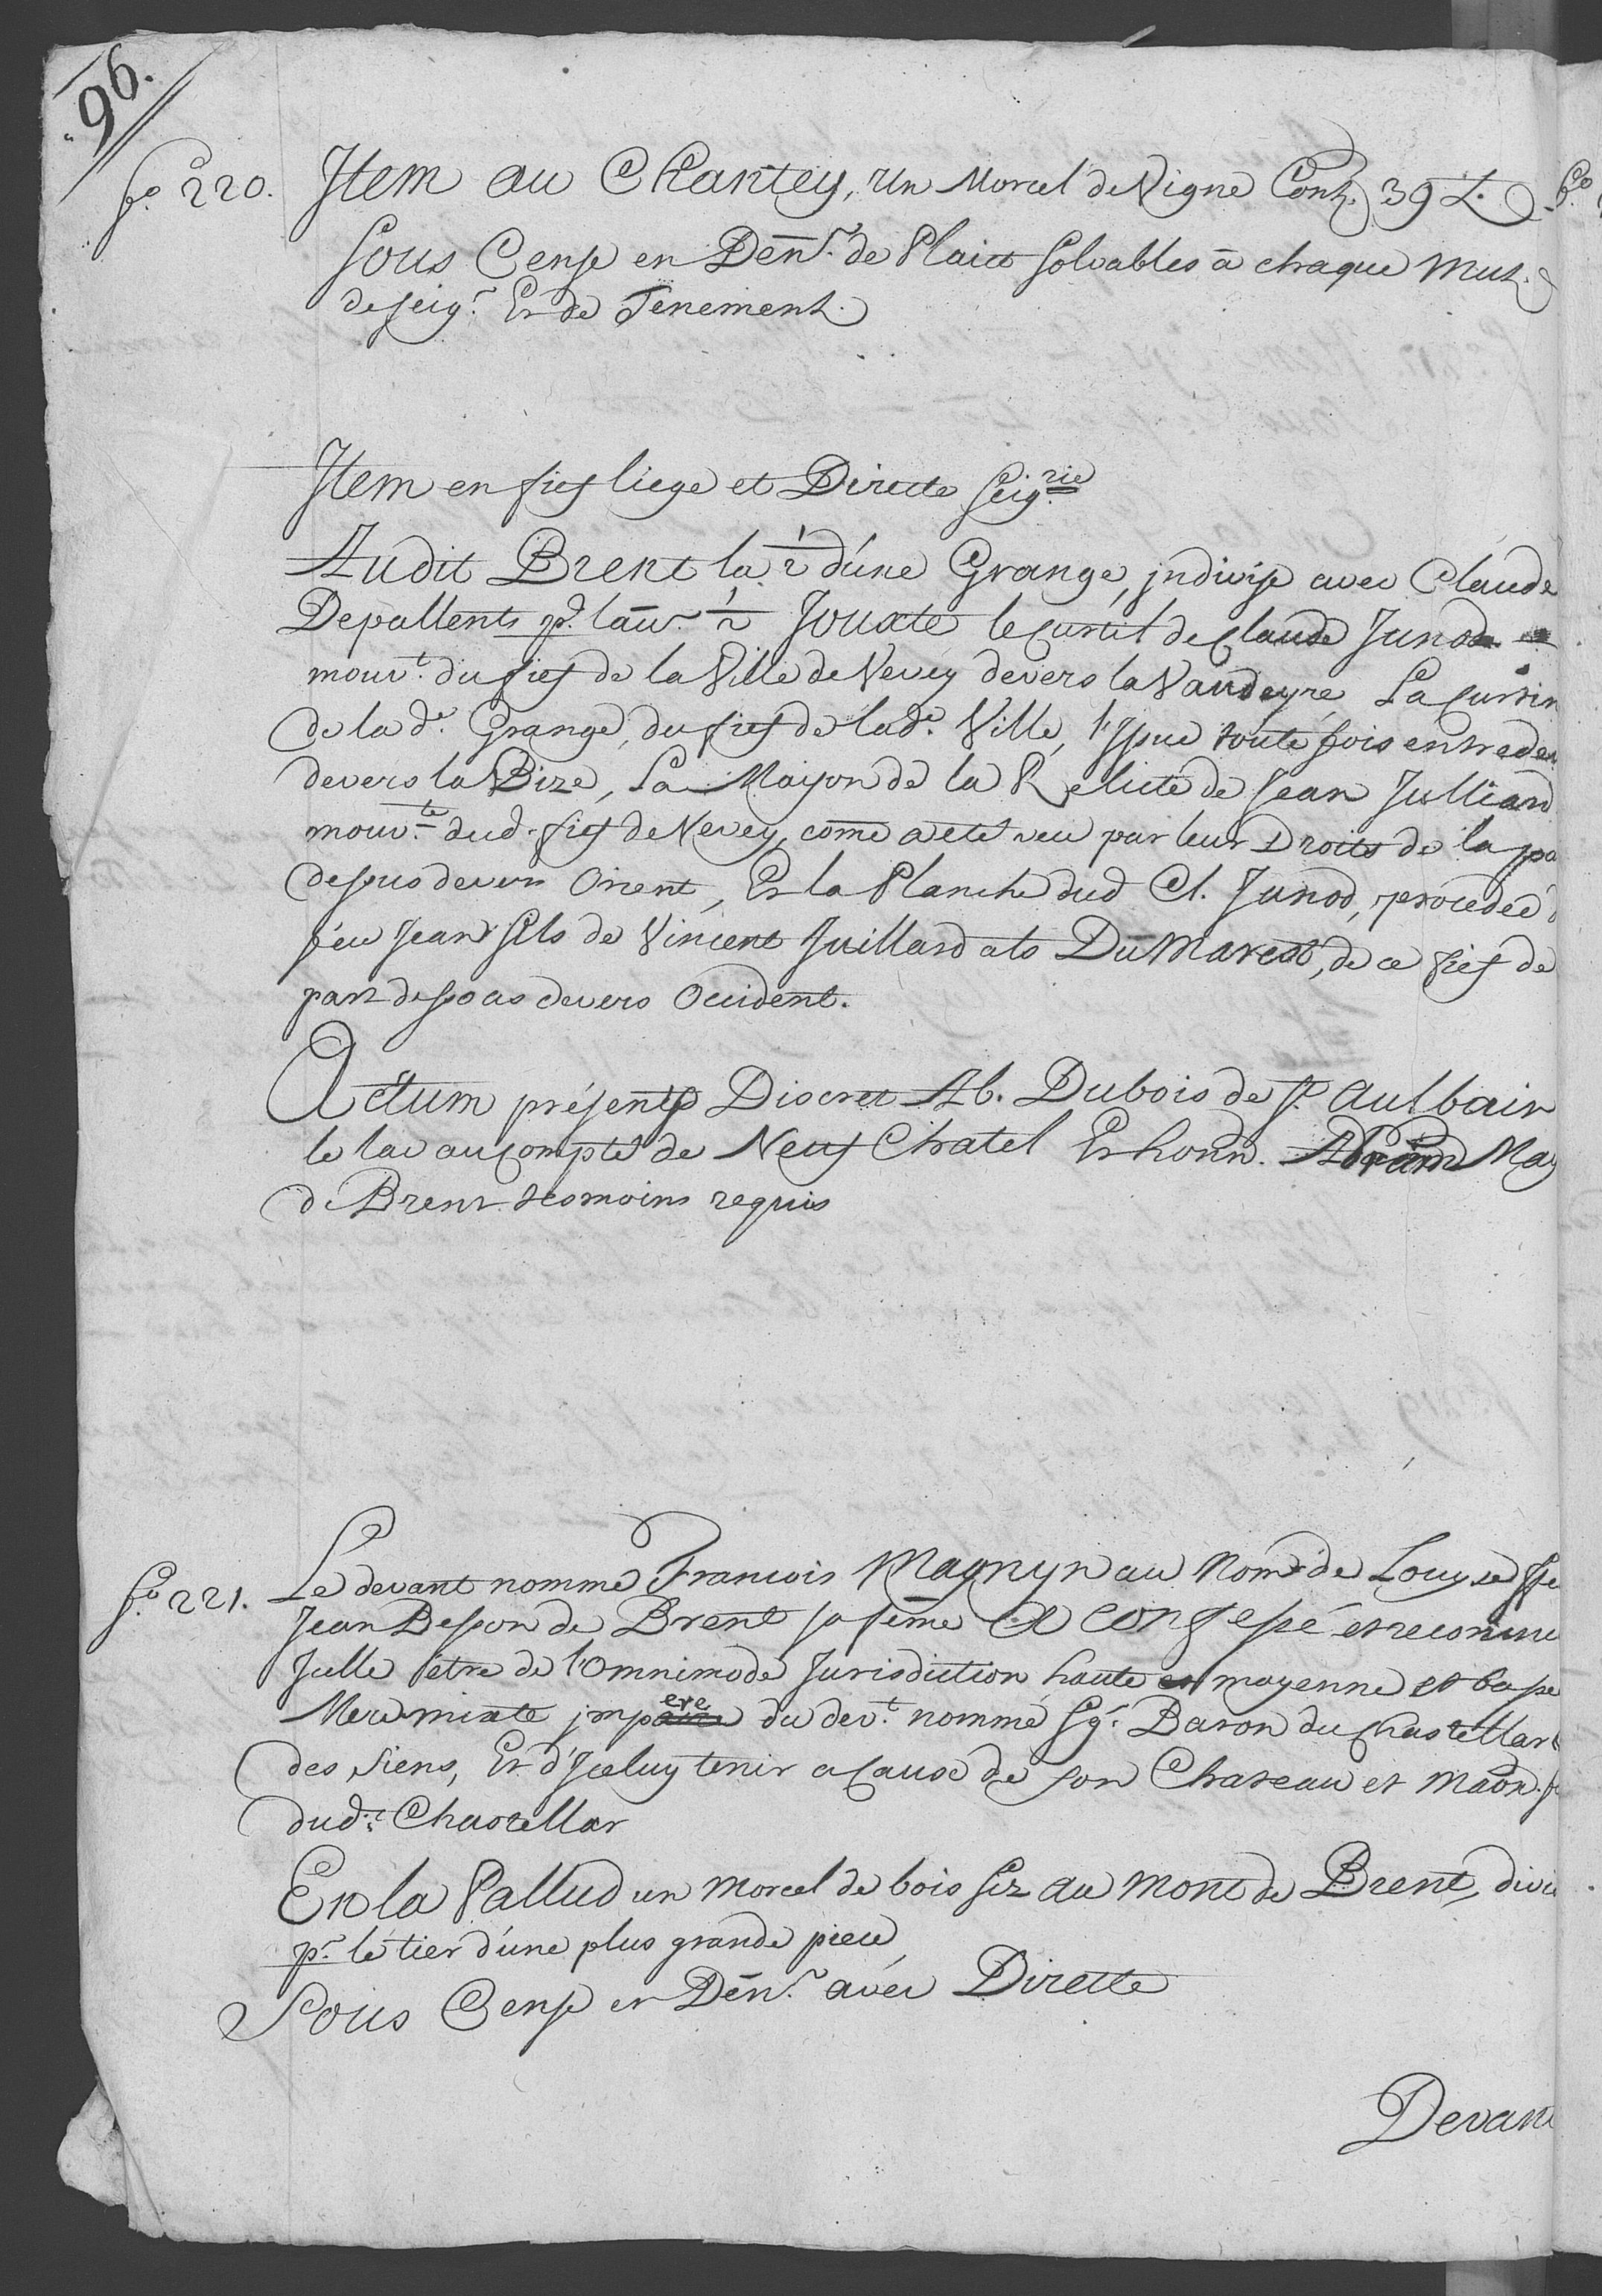 96.
fo. 220. Item au Chantey, un Morcel de Vigne Cont. 39 L.
sous Cense en Den.rs de Plaict solvables à chaque Mut.
de seig.r Et de Tenement.
Item en fief liege et Directe Seig.rie
Audit Brent la 1/2 d'une Grange, jndivise avec Claude
Depallents p.r l'aut.e 1/2 Jouxte le Curtil de Claude Junod
mouv.t du fief de la Ville de Vevey devers la Vaudeyre La Curtin
de la d.e Grange, du fief de lad.e Ville, l'Issue toute fois entredeux
devers la Bize, La Mayson de la Relicte de Jean Julliard
mouv.te dud. fief de Vevey, come a eté veu par leur Droits de la pa
dessus devers Orient, Et la Planche dud Cl. Junod, procedée d
feu Jean fils de Vincent Juillard als Du Marest, de ce fief de
part dessous devers Occident.
Actum présents Discret Ab. Dubois de St. Aulbain
le lac au Compté de Neuf Chatel Et honn. Abram May
de Brent tesmoins requis
fo. 221. Le devant nommé Francois Magnyn au Nom de Louyse ffe
Jean Besson de Brent sa feme A Confessé et reconnu
Jcelle être de l'Omnimode Jurisdiction haute moyenne et basse
Mere mixte jmpere du dev.t nommé Sg.r Baron du Chastellar
des siens, Et d'Jceluy tenir a Cause de son Chateau et Maôn f
dud.t Chastellar
En la Pallud un Morcel de bois siz au Mont de Brent, divis
p.r le tier d'une plus grande piece
Sous Cense en Den.rs avec Directe
Devant